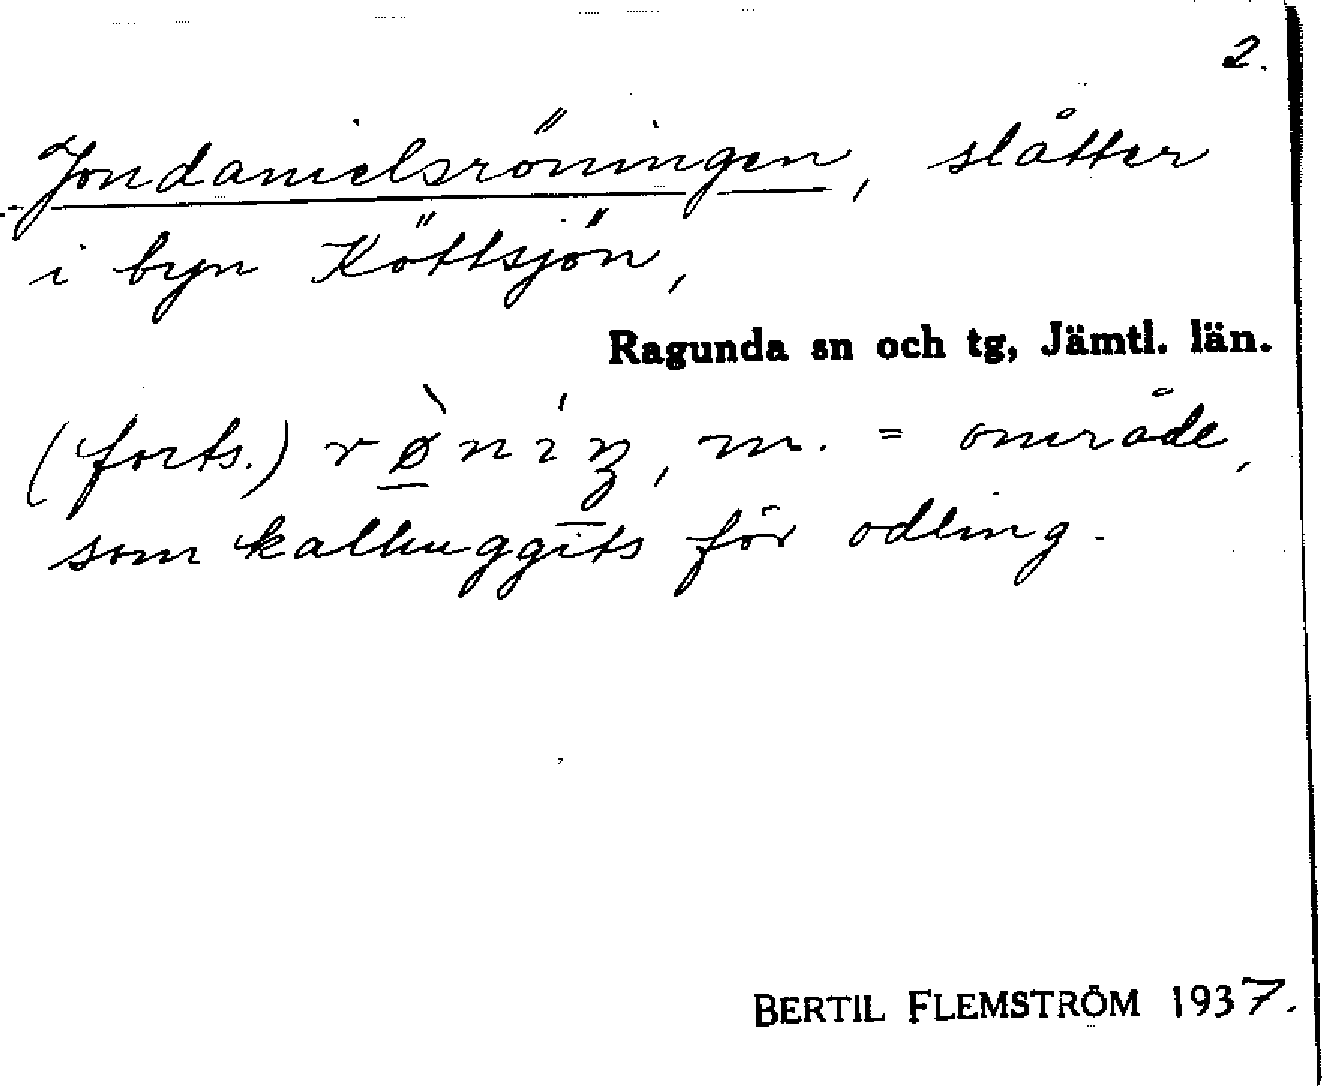 2.
Jondanielsröningen, slåtter
i byn Köttsjön,
Ragunda sn och tg, Jämtl. län.
(forts.) rø̀níŋ, m. = område,
som kalhuggits för odling.
BERTIL FLEMSTRÖM 1937.